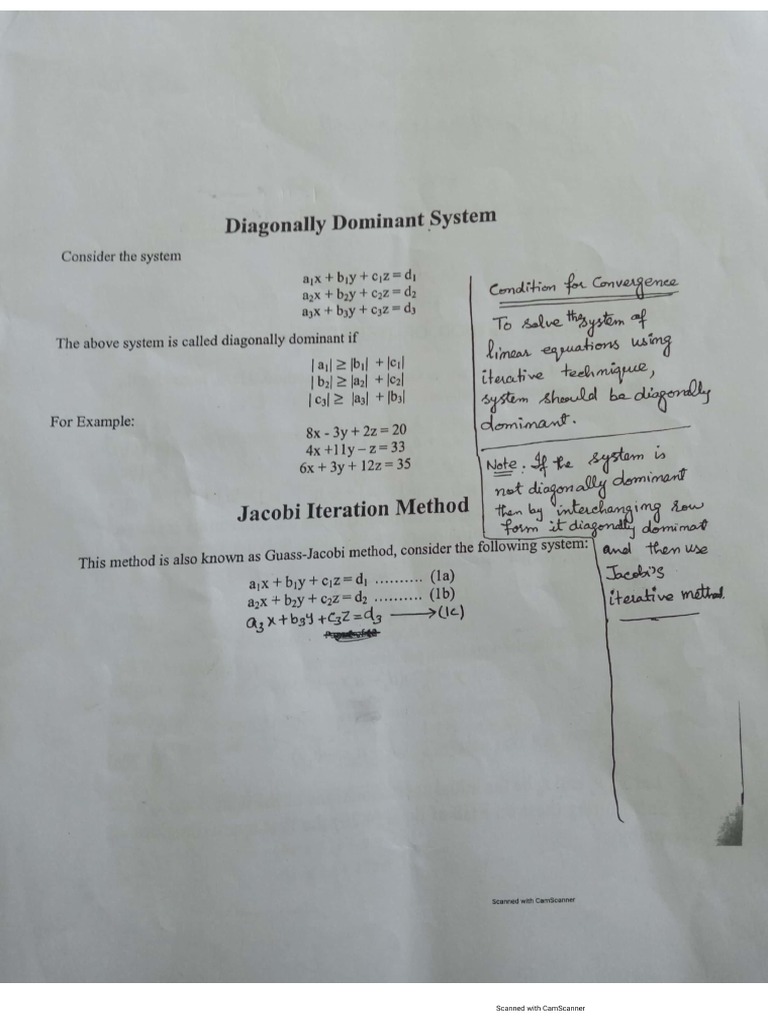 Diagonally Dominant System
Consider the system
a₁x + b₁y + c₁z = d₁
a₂x + b₂y + c₂z = d₂
a₃x + b₃y + c₃z = d₃
The above system is called diagonally dominant if
| a₁| ≥ |b₁| + |c₁|
| b₂| ≥ |a₂| + |c₂|
| c₃| ≥ |a₃| + |b₃|
For Example:
8x - 3y + 2z = 20
4x +11y – z = 33
6x + 3y + 12z = 35
Condition for Convergence
To solve the system of
linear equations using
iterative technique,
system should be diagonally
dominant.
Note: If the system is
not diagonally dominant
then by interchanging row
form it diagonally dominat
and then use
Jacobi's
iterative method.
Jacobi Iteration Method
This method is also known as Guass-Jacobi method, consider the following system:
a₁x + b₁y + c₁z = d₁ .......... (1a)
a₂x + b₂y + c₂z = d₂ .......... (1b)
a₃x + b₃y + c₃z = d₃ ⟶ (1c)
Scanned with CamScanner
Scanned with CamScanner